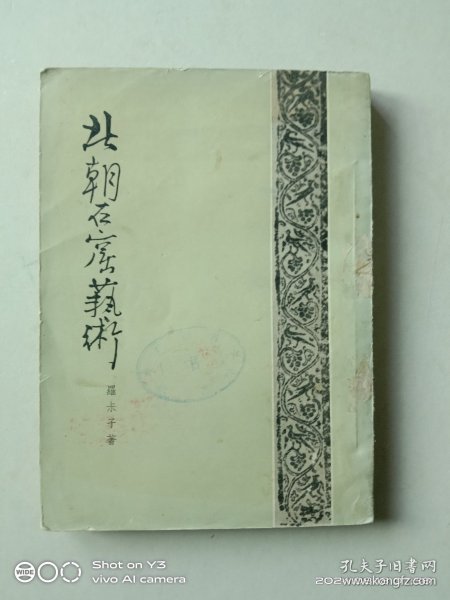 北朝石窟藝術
羅尗子著
WIDE
Shot on Y3
vivo AI camera
孔夫子旧书网
www.kongfz.com